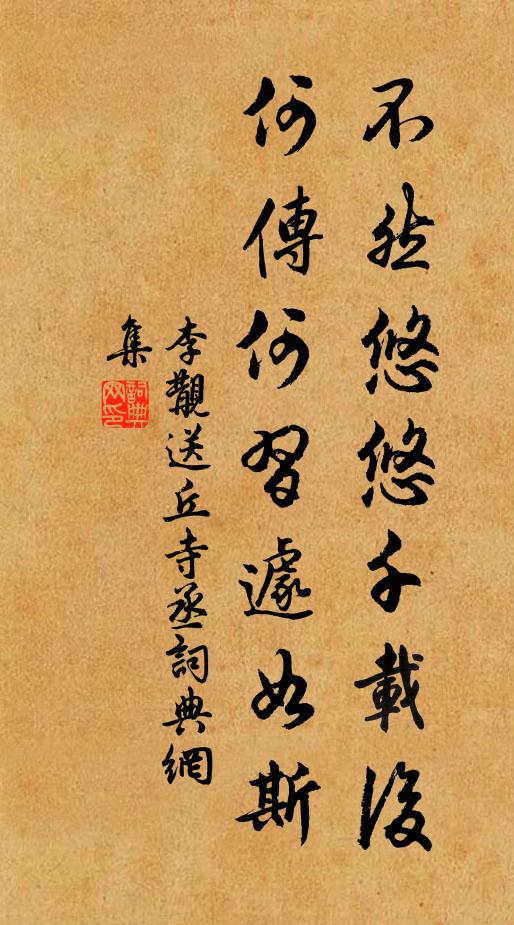 不然悠悠千載後
何傳何習遽如斯
李覯送丘寺丞詞典網
集
詞典
网印